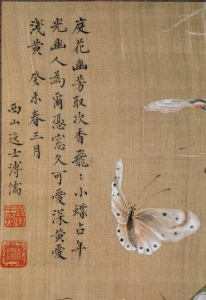 庭花幽芳取次香飛〻小蝶占年
光幽人為爾憑窓久可愛深黃愛
淺黃 癸未春三月
西山逸士溥儒